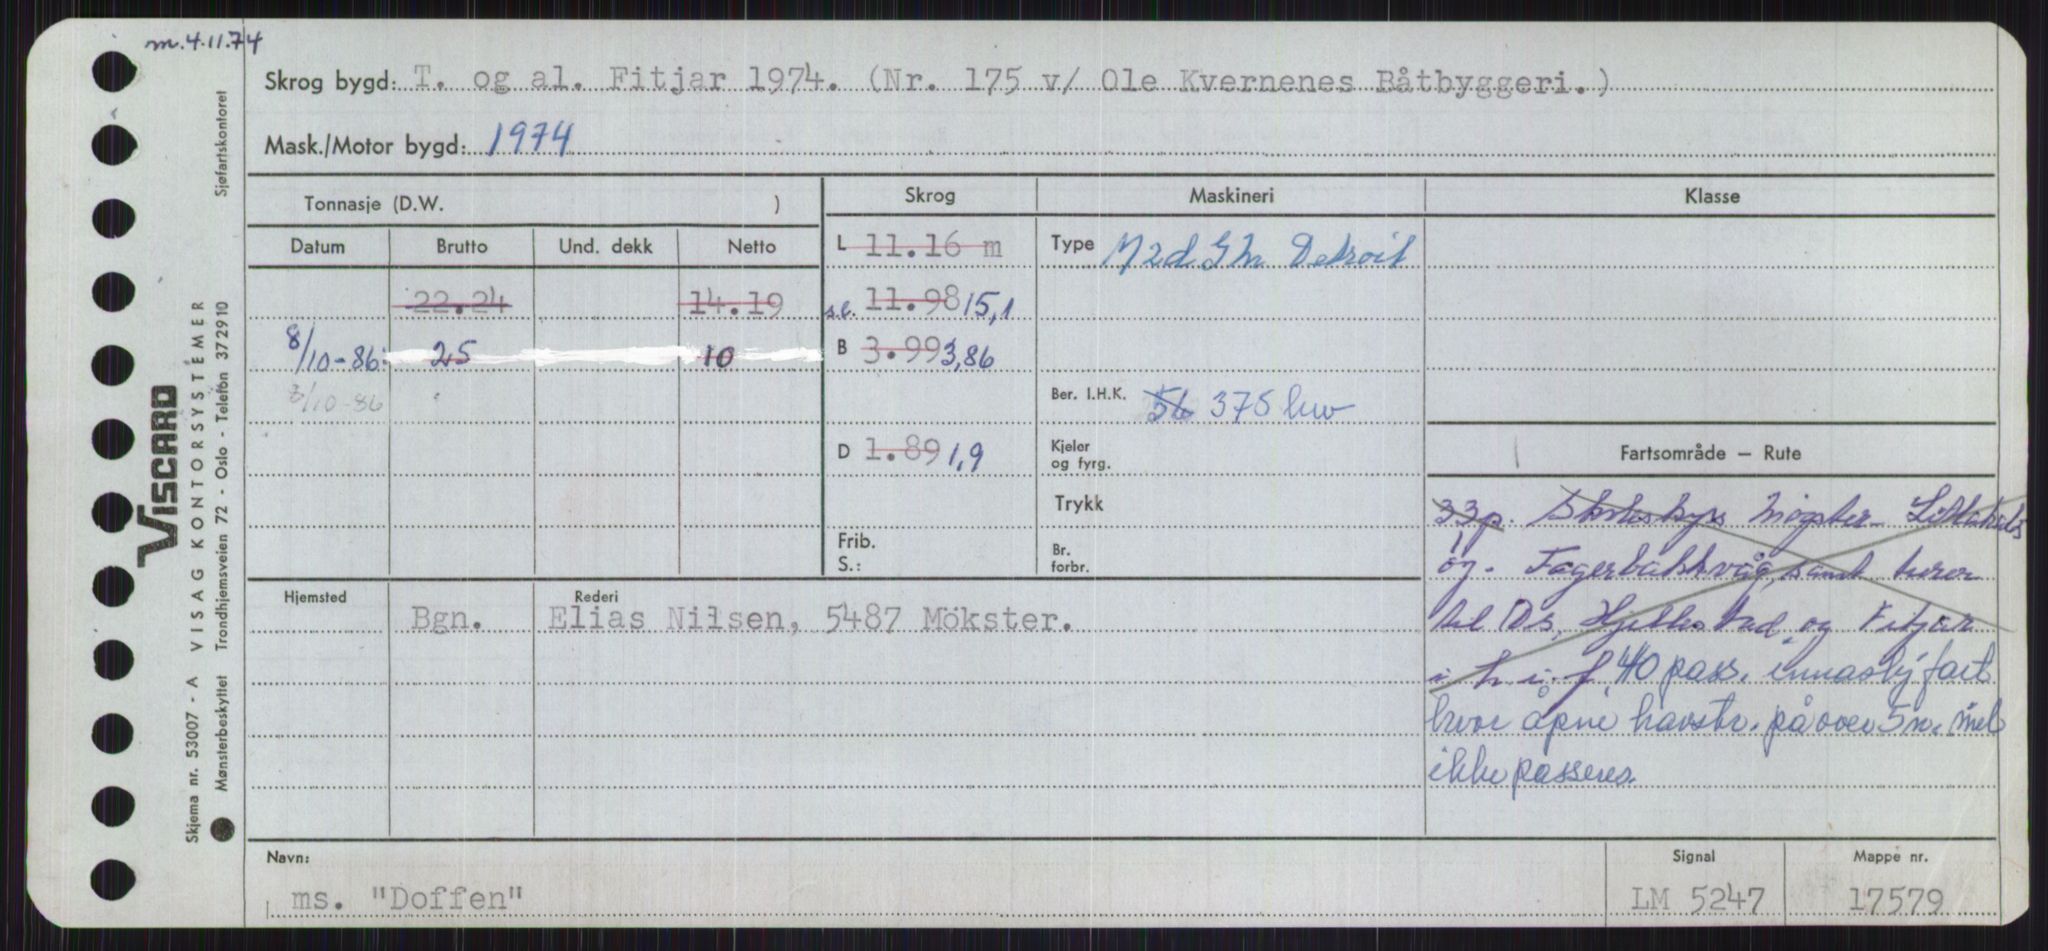 m. 4.11.74
Skrog bygd: T. og al. Fitjar 1974. (Nr. 175 v/ Ole Kvernenes Båtbyggeri.)
Mask./Motor bygd: 1974
Tonnasje (D.W. )
Skrog
Maskineri
Klasse
Datum Brutto Und. dekk Netto
L 11.16 m
Type Detroit
22.24 14.19
11.98 15,1
8/10-86 25 10
B 3.99 3,86
8/10-86
Ber. I.H.K. 56 375 hw
D 1.89 1,9
Kjeler
og fyrg.
Trykk
Frib.
S.:
Br.
forbr.
Fartsområde — Rute
33 p. Møgster
og Fagerbakkvåg, samt turer
til Os, Hjellestad og Fitjar
i h. i. f. 40 pass. i fart
hvor åpne havstr. på over 5 n. mil
ikke passeres.
Hjemsted Rederi
Bgn. Elias Nilsen, 5487 Mökster.
Navn:
ms. "Doffen"
Signal
LM 5247
Mappe nr.
17579
Skjema nr. 53007 - A VISAG KONTORSYSTEMER
Mønsterbeskyttet Trondhjemsveien 72 - Oslo - Telefon 372910 Sjøfartskontoret
VISCARD